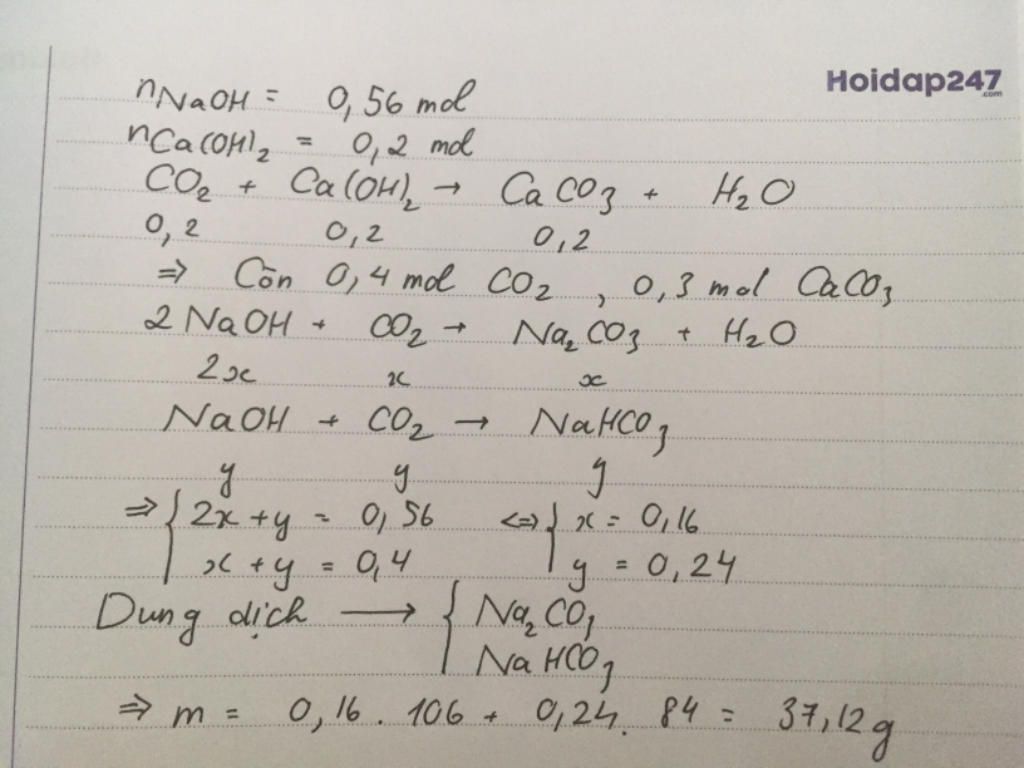 Hoidap247
.com
nNaOH = 0,56 mol
nCa(OH)2 = 0,2 mol
CO2 + Ca(OH)2 → CaCO3 + H2O
0,2 0,2 0,2
=> Còn 0,4 mol CO2 , 0,3 mol CaCO3
2NaOH + CO2 → Na2CO3 + H2O
2x x x
NaOH + CO2 → NaHCO3
y y y
=> { 2x + y = 0,56 <=> { x = 0,16
x + y = 0,4 y = 0,24
Dung dịch → { Na2CO3
NaHCO3
=> m = 0,16 . 106 + 0,24 . 84 = 37,12g